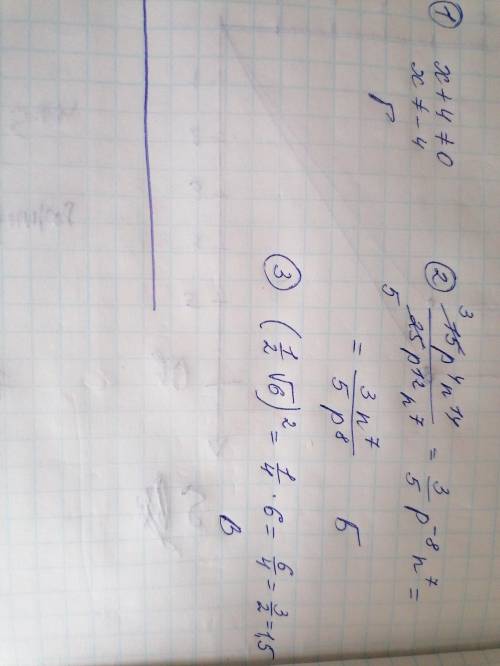 ① x + 4 ≠ 0
x ≠ -4
Г
② 15p⁴n¹⁴ / 25p¹²n⁷ = 3/5 p⁻⁸n⁷ =
3
5
= 3n⁷ / 5p⁸
Б
③ (1/2 √6)² = 1/4 · 6 = 6/4 = 3/2 = 1,5
В